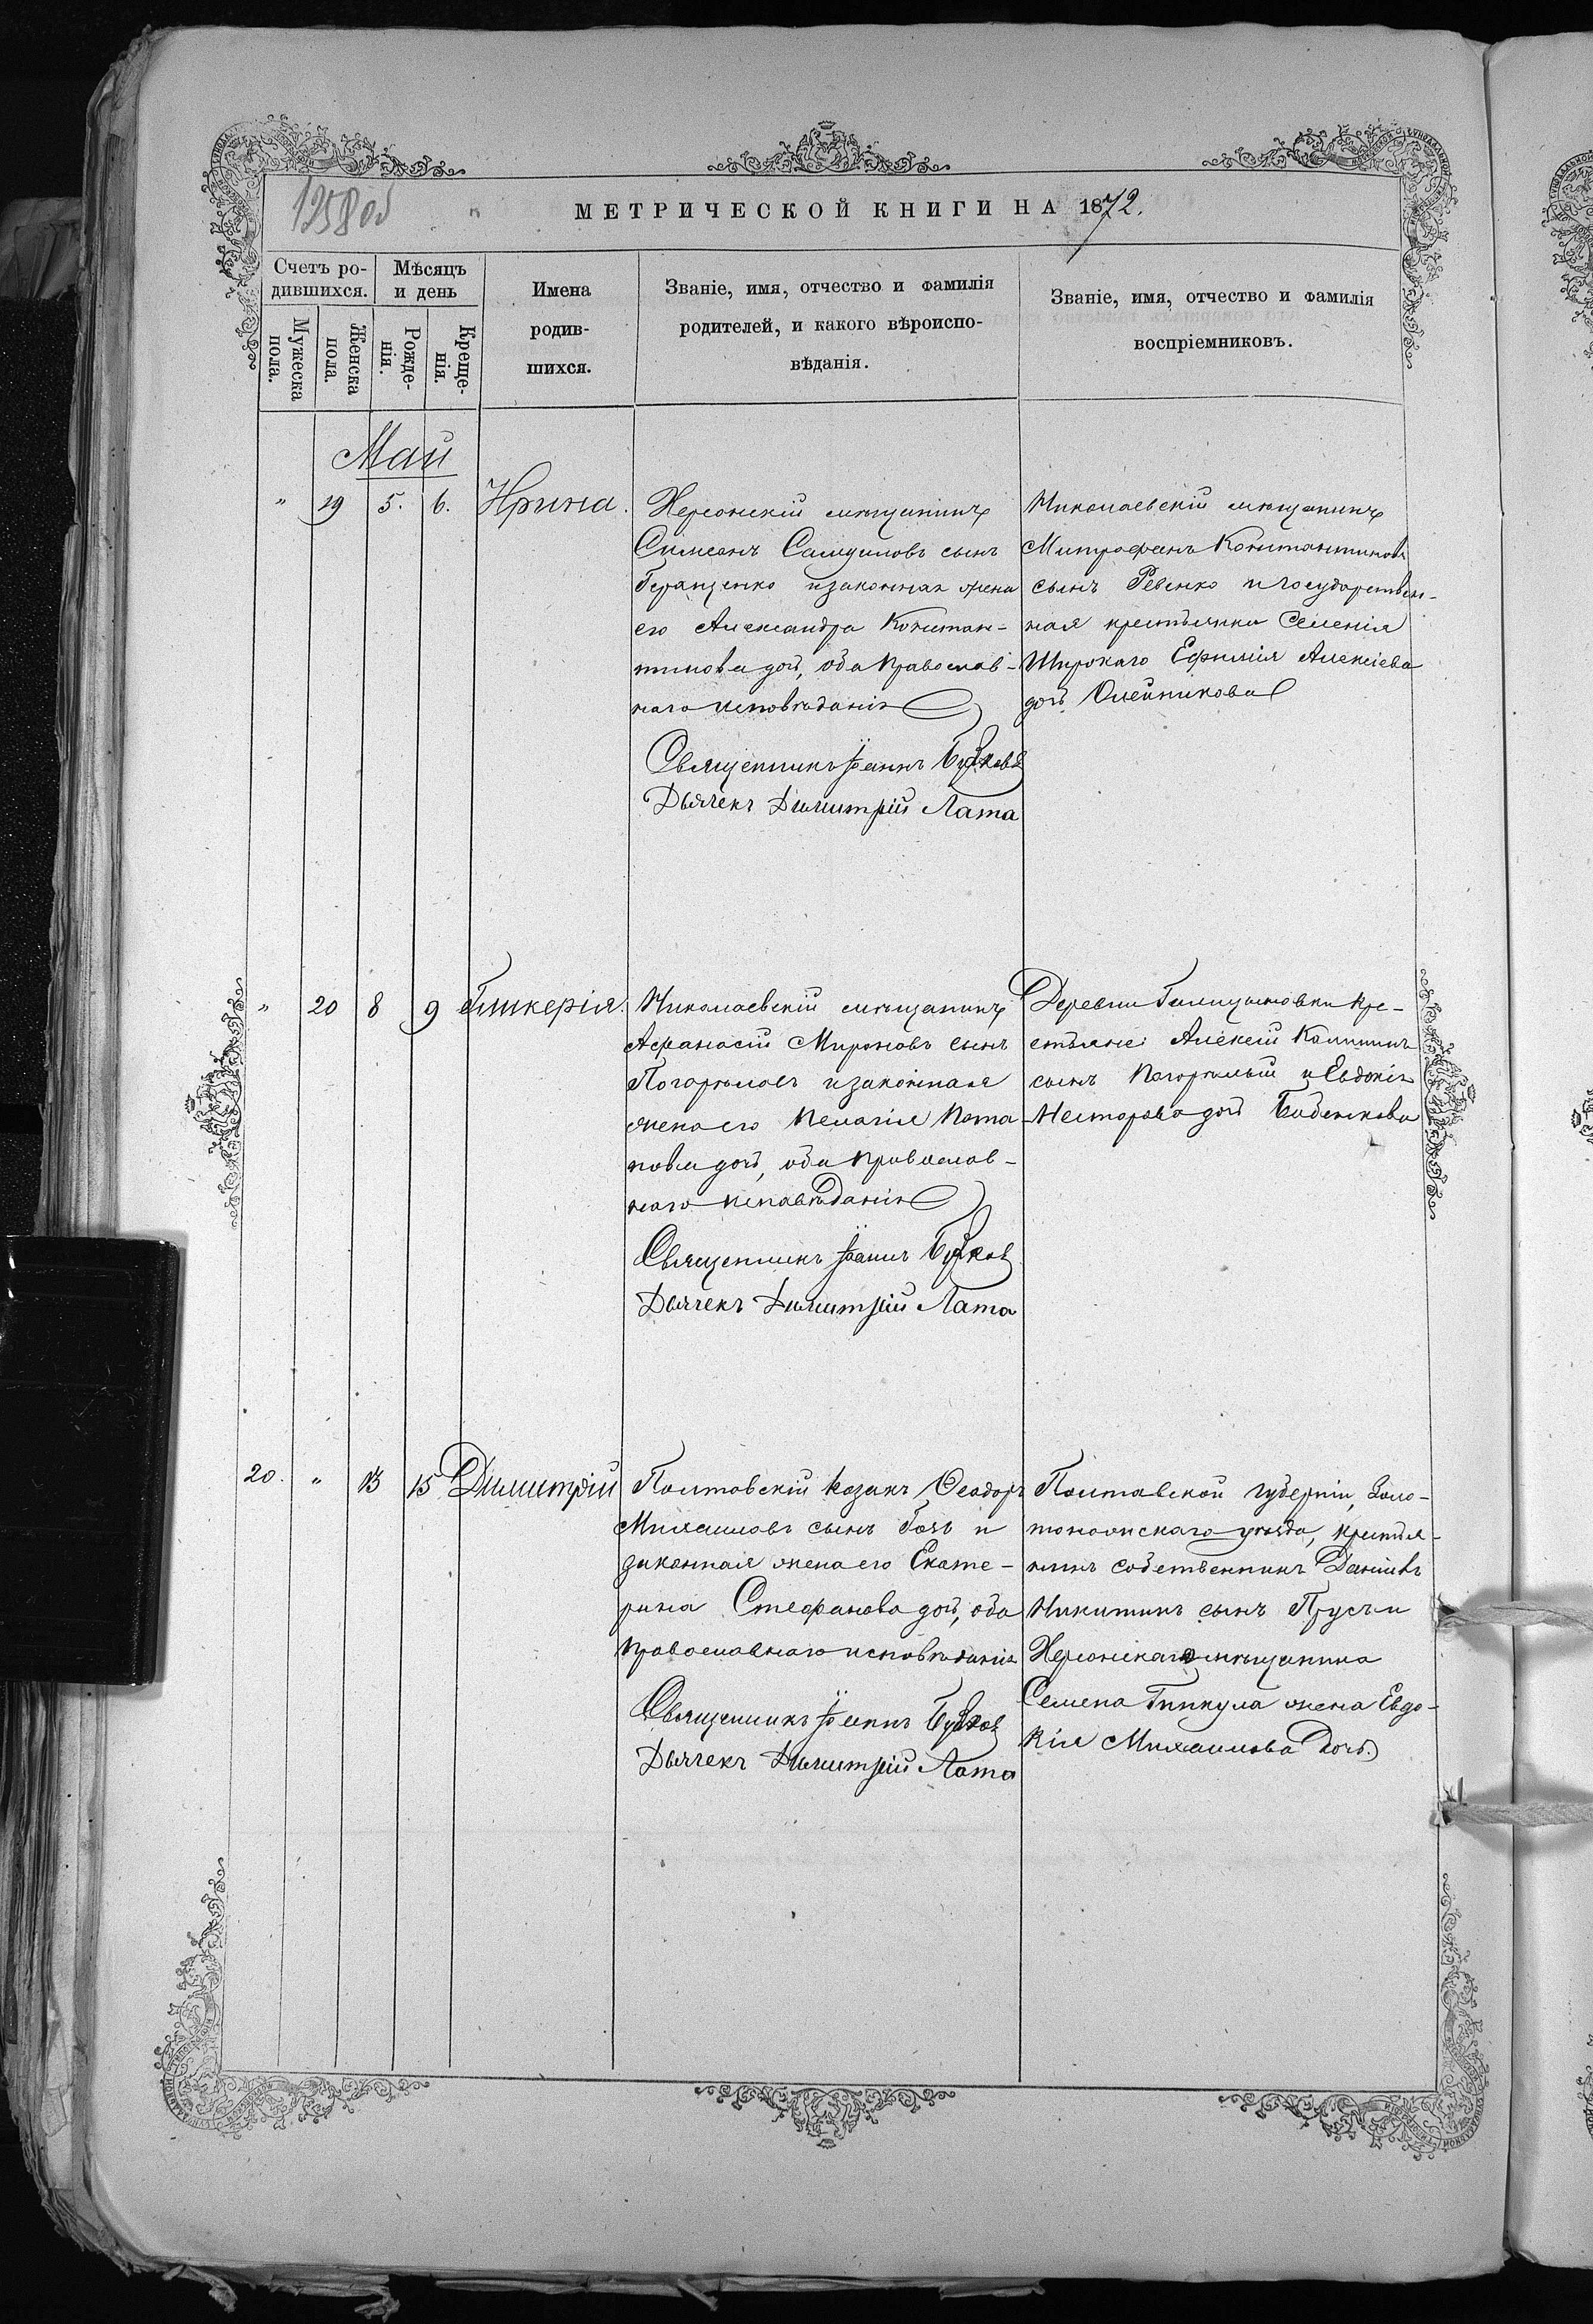 12580б
МЕТРИЧЕСКОЙ КНИГИ НА 1872.
Счетъ ро-
дившихся.
Мѣсяцъ
и день
Мужеска
пола.
Женска
пола.
Рожде-
нія.
Креще-
нія.
Имена
родив-
шихся.
Званіе, имя, отчество и фамилія
родителей, и какого вѣроиспо-
вѣданія.
Званіе, имя, отчество и фамилія
воспріемниковъ.
Май
" 19 5. 6. Ирина.
Херсонскій мѣщанинъ
Симеонъ Самуиловъ сынъ
и законная жена
его Александра Констан-
тинова дочь, оба православ-
наго исповѣданія
Священникъ Іоаннъ
Дьячекъ Димитрій Лата
Николаевскій мѣщанинъ
Митрофанъ Константиновъ
сынъ Ревенко и государствен-
ная крестьянка селенія
Широкаго Ефимія Алексіева
дочь Олейникова
" 20 8 9 Гликерія.
Николаевскій мѣщанинъ
Афанасій Мироновъ сынъ
Погорѣловъ и законная
жена его Пелагія Пота-
пова дочь, оба православ-
наго исповѣданія
Священникъ Іоаннъ
Дьячекъ Димитрій Лата
Деревни кре-
стьяне: Алексій Калининъ
сынъ Погорѣлый и Евдокія
Несторова дочь
20. " 13 15 Димитрій
Полтавскій козакъ Ѳеодоръ
Михаиловъ сынъ и
законная жена его Екате-
рина Стефанова дочь, оба
православнаго исповѣданія
Священникъ Іоаннъ
Дьячекъ Димитрій Лата
Полтавской губерніи, Золо-
тоношскаго уѣзда, крестья-
нинъ собственникъ Даніилъ
Никитинъ сынъ Прусъ и
Херсонскаго мѣщанина
Семена жена Евдо-
кія Михаилова дочь.